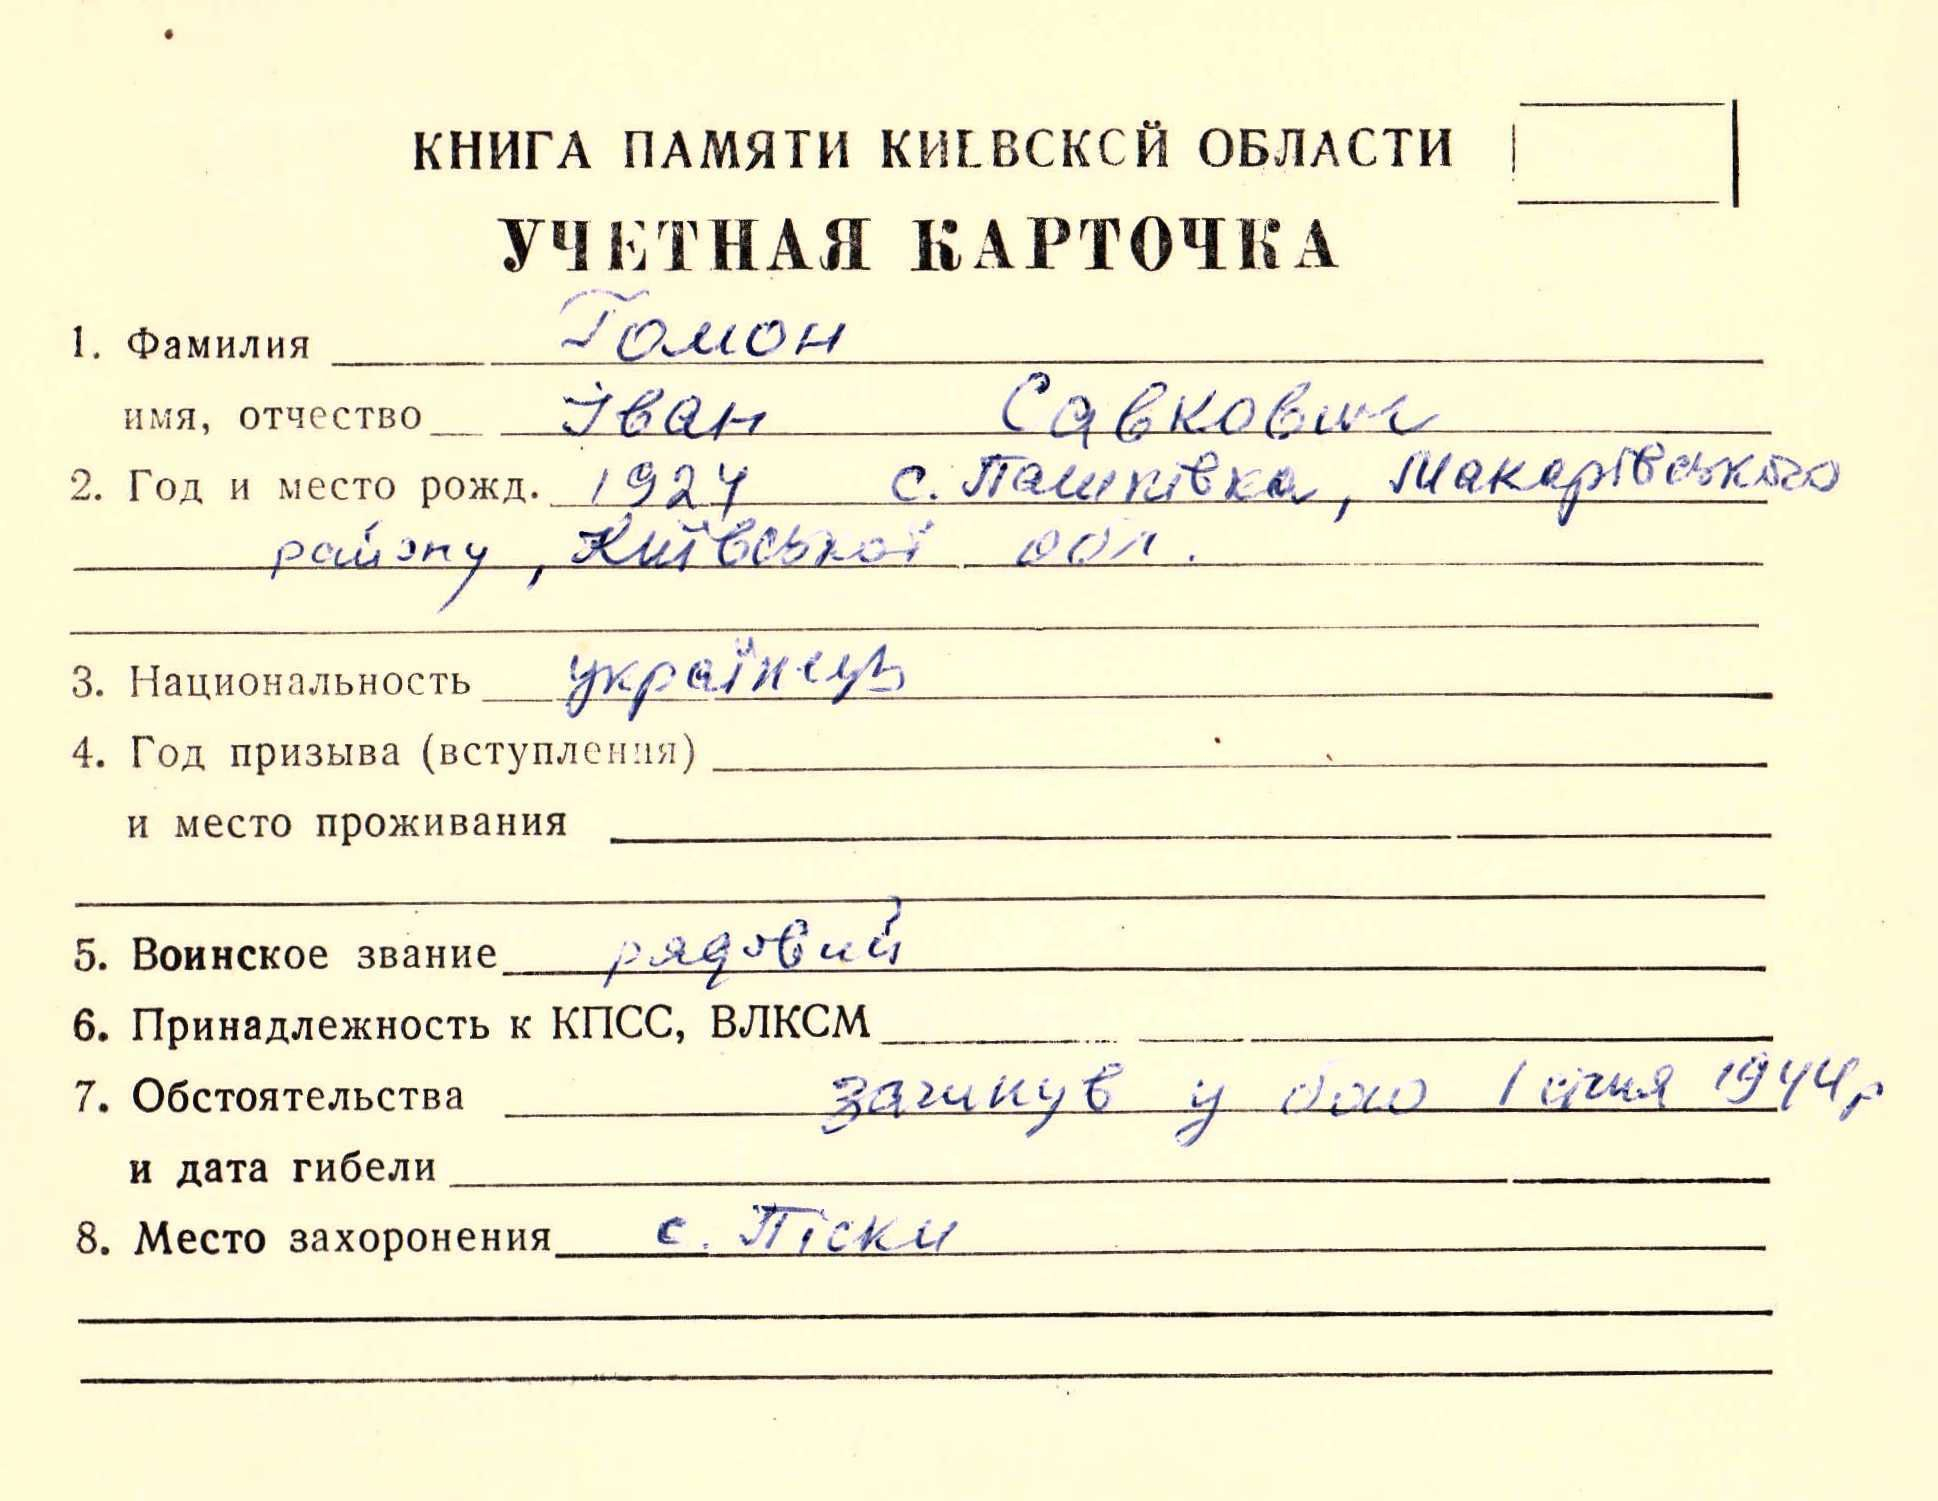 КНИГА ПАМЯТИ КИЕВСКОЙ ОБЛАСТИ
УЧЕТНАЯ КАРТОЧКА
1. Фамилия Гомон
имя, отчество Іван Савкович
2. Год и место рожд. 1924 с. Пашківка, Макарівського
району, Київської обл.
3. Национальность українець
4. Год призыва (вступления)
и место проживания
5. Воинское звание рядовий
6. Принадлежность к КПСС, ВЛКСМ
7. Обстоятельства загинув у бою 1 січня 1944р
и дата гибели
8. Место захоронения с. Піски